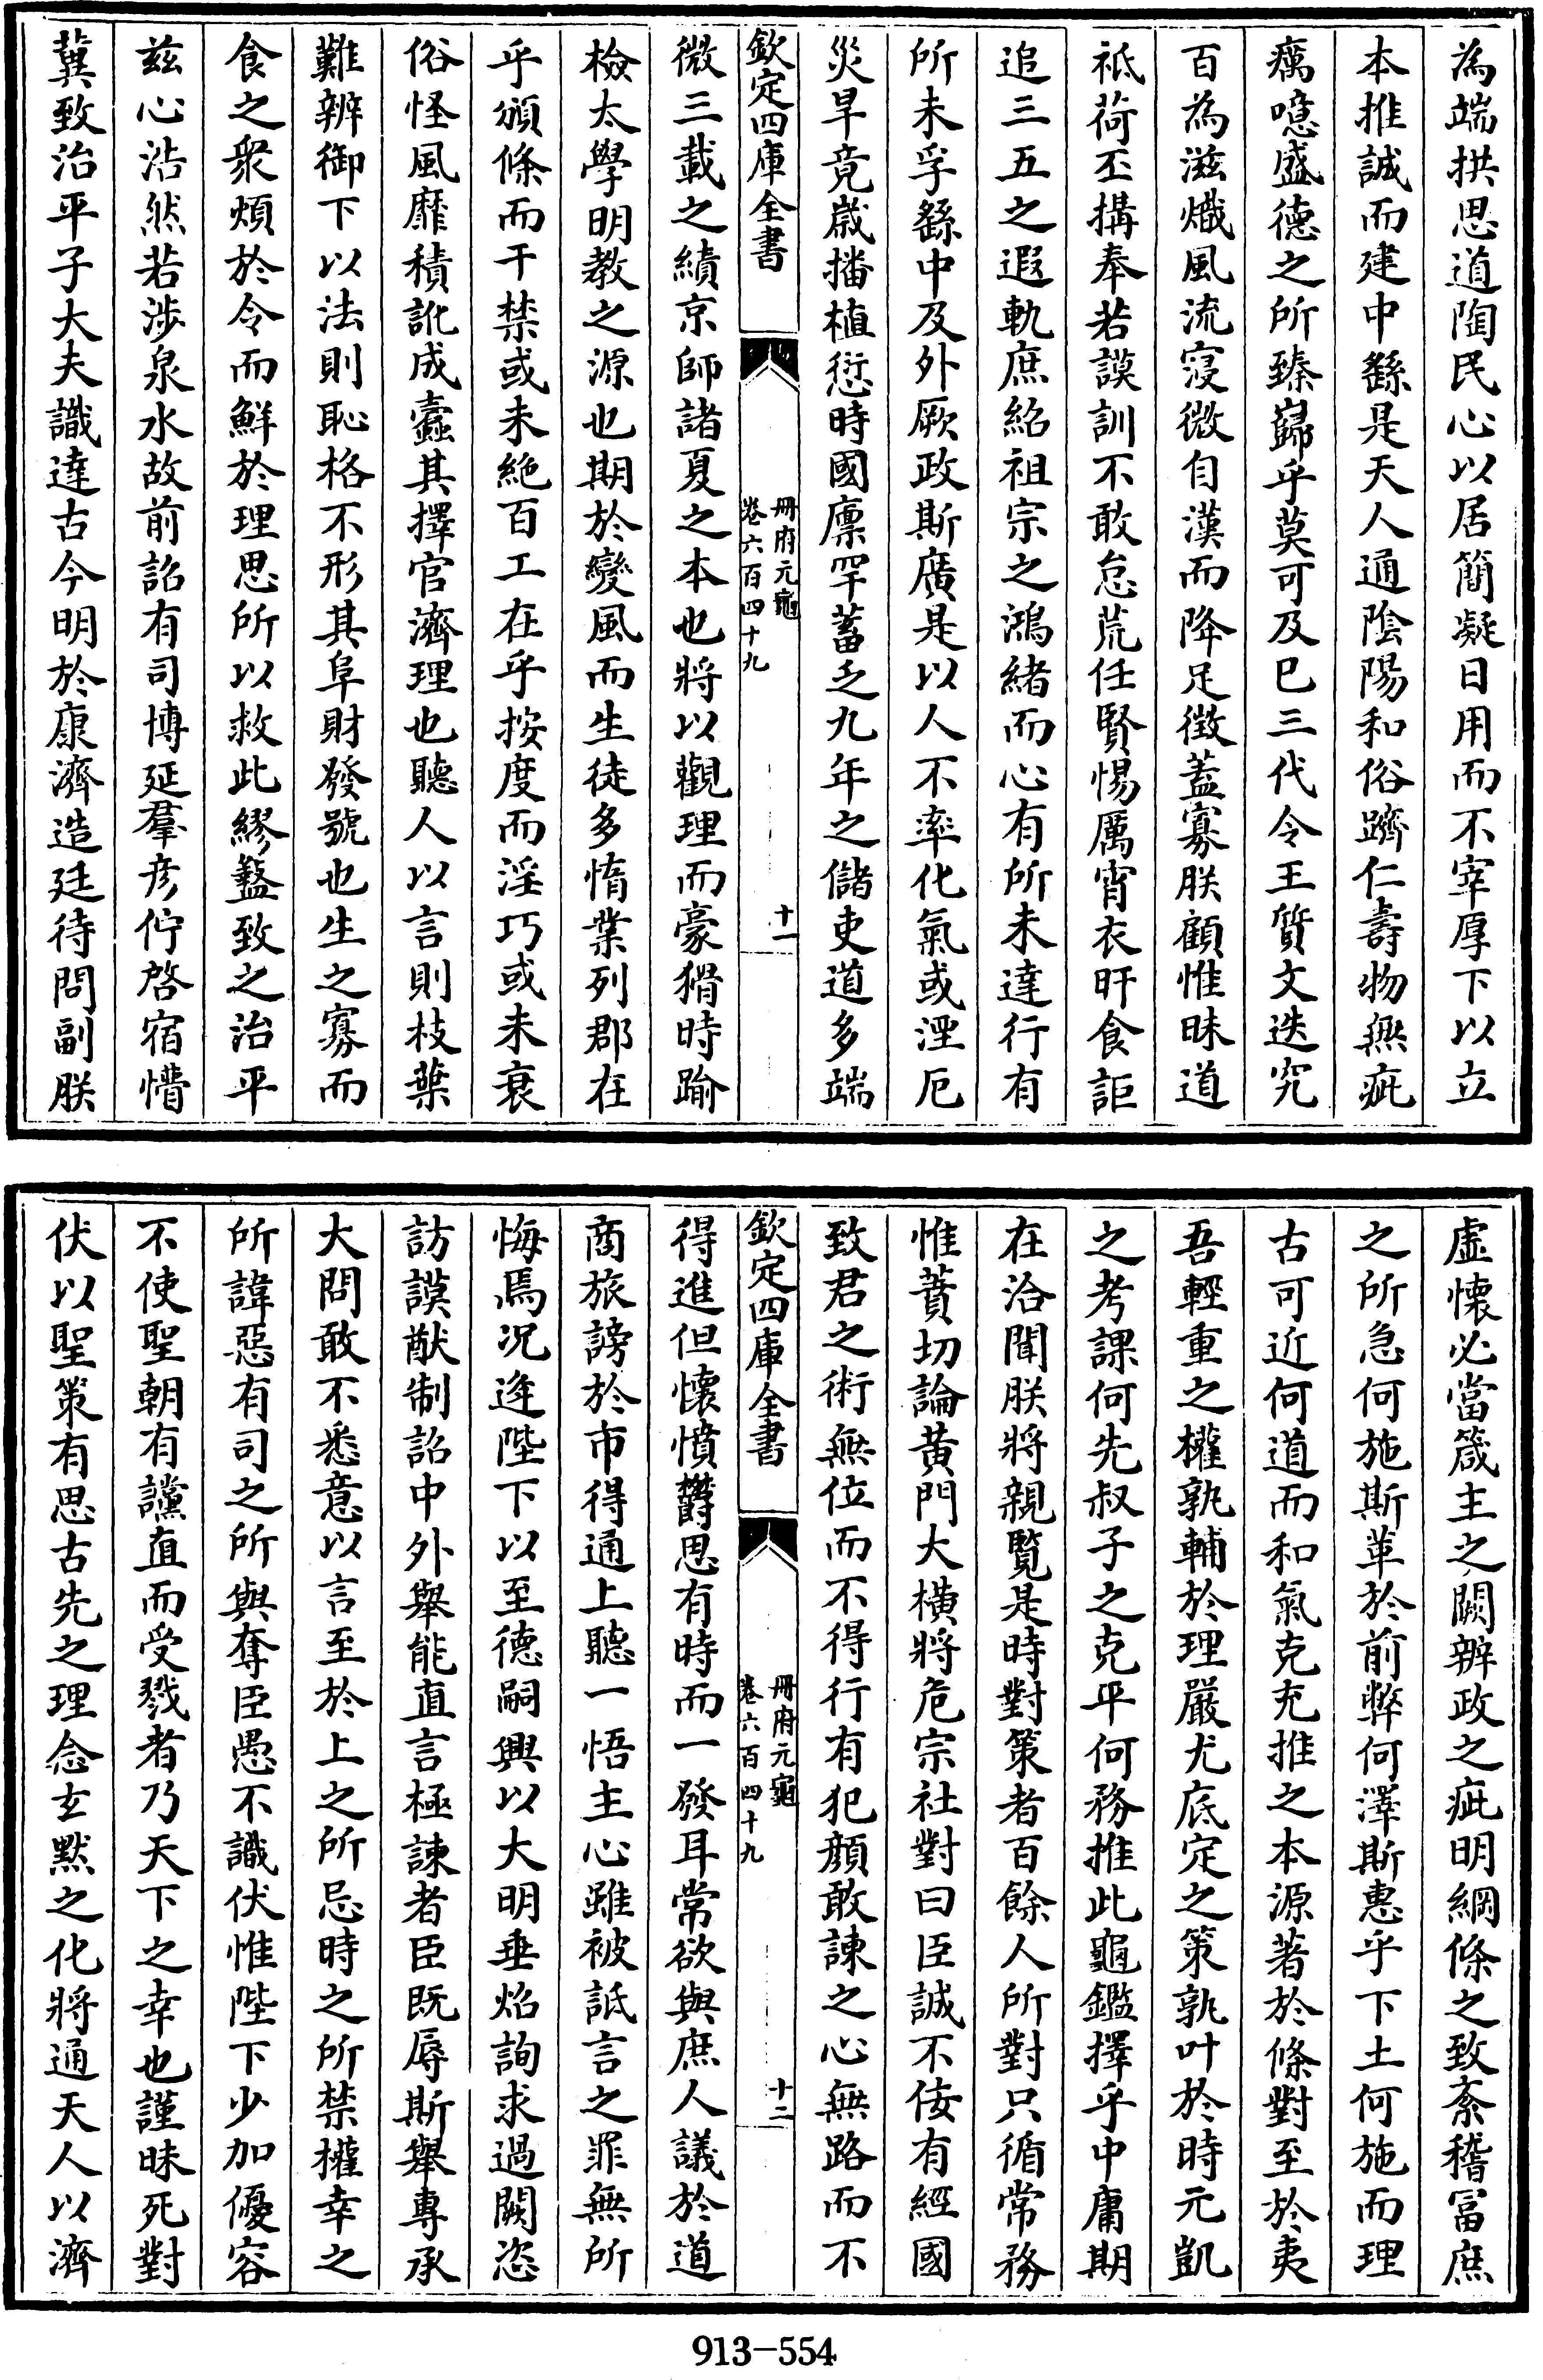 為端拱思道陶民心以居簡凝日用而不宰厚下以立
本推誠而建中繇是天人通陰陽和俗躋仁壽物無疵
癘噫盛德之所臻巋乎莫可及巳三代令王質文迭究
百為滋熾風流寖微自漢而降足徴蓋寡朕顧惟昧道
祗荷丕搆奉若謨訓不敢怠荒任賢惕厲宵衣旰食詎
追三五之遐軌庶紹祖宗之鴻緒而心有所未達行有
所未孚繇中及外厥政斯廣是以人不率化氣或湮厄
災旱竟嵗播植愆時國廪罕蓄乏九年之儲吏道多端
欽定四庫全書
册府元龜
卷六百四十九
十一
微三載之績京師諸夏之本也將以觀理而豪猾時踰
檢太學明教之源也期於變風而生徒多惰業列郡在
乎頒條而干禁或未絶百工在乎按度而淫巧或未衰
俗怪風靡積訛成蠹其擇官濟理也聽人以言則枝葉
難辨御下以法則恥格不形其阜財發號也生之寡而
食之衆煩於令而鮮於理思所以救此繆盭致之治平
兹心浩然若涉泉水故前詔有司博延羣彦佇啓宿懵
冀致治平子大夫識達古今明於康濟造廷待問副朕
虚懐必當箴主之闕辨政之疵明綱條之致紊稽冨庶
之所急何施斯革於前弊何澤斯惠乎下土何施而理
古可近何道而和氣克充推之本源著於條對至於夷
吾輕重之權孰輔於理嚴尤底定之策孰叶於時元凱
之考課何先叔子之克平何務推此龜鑑擇乎中庸期
在洽聞朕將親覧是時對策者百餘人所對只循常務
惟蕡切論黄門大横將危宗社對曰臣誠不佞有經國
致君之術無位而不得行有犯顔敢諫之心無路而不
欽定四庫全書
册府元龜
卷六百四十九
十二
得進但懐憤鬱思有時而一發耳常欲與庶人議於道
商旅謗於市得通上聽一悟主心雖被詆言之罪無所
悔焉况逢陛下以至德嗣興以大明垂焰詢求過闕恣
訪謨猷制詔中外舉能直言極諫者臣既辱斯舉專承
大問敢不悉意以言至於上之所忌時之所禁權幸之
所諱惡有司之所與奪臣愚不識伏惟陛下少加優容
不使聖朝有讜直而受戮者乃天下之幸也謹昧死對
伏以聖策有思古先之理念玄黙之化將通天人以濟
913-554